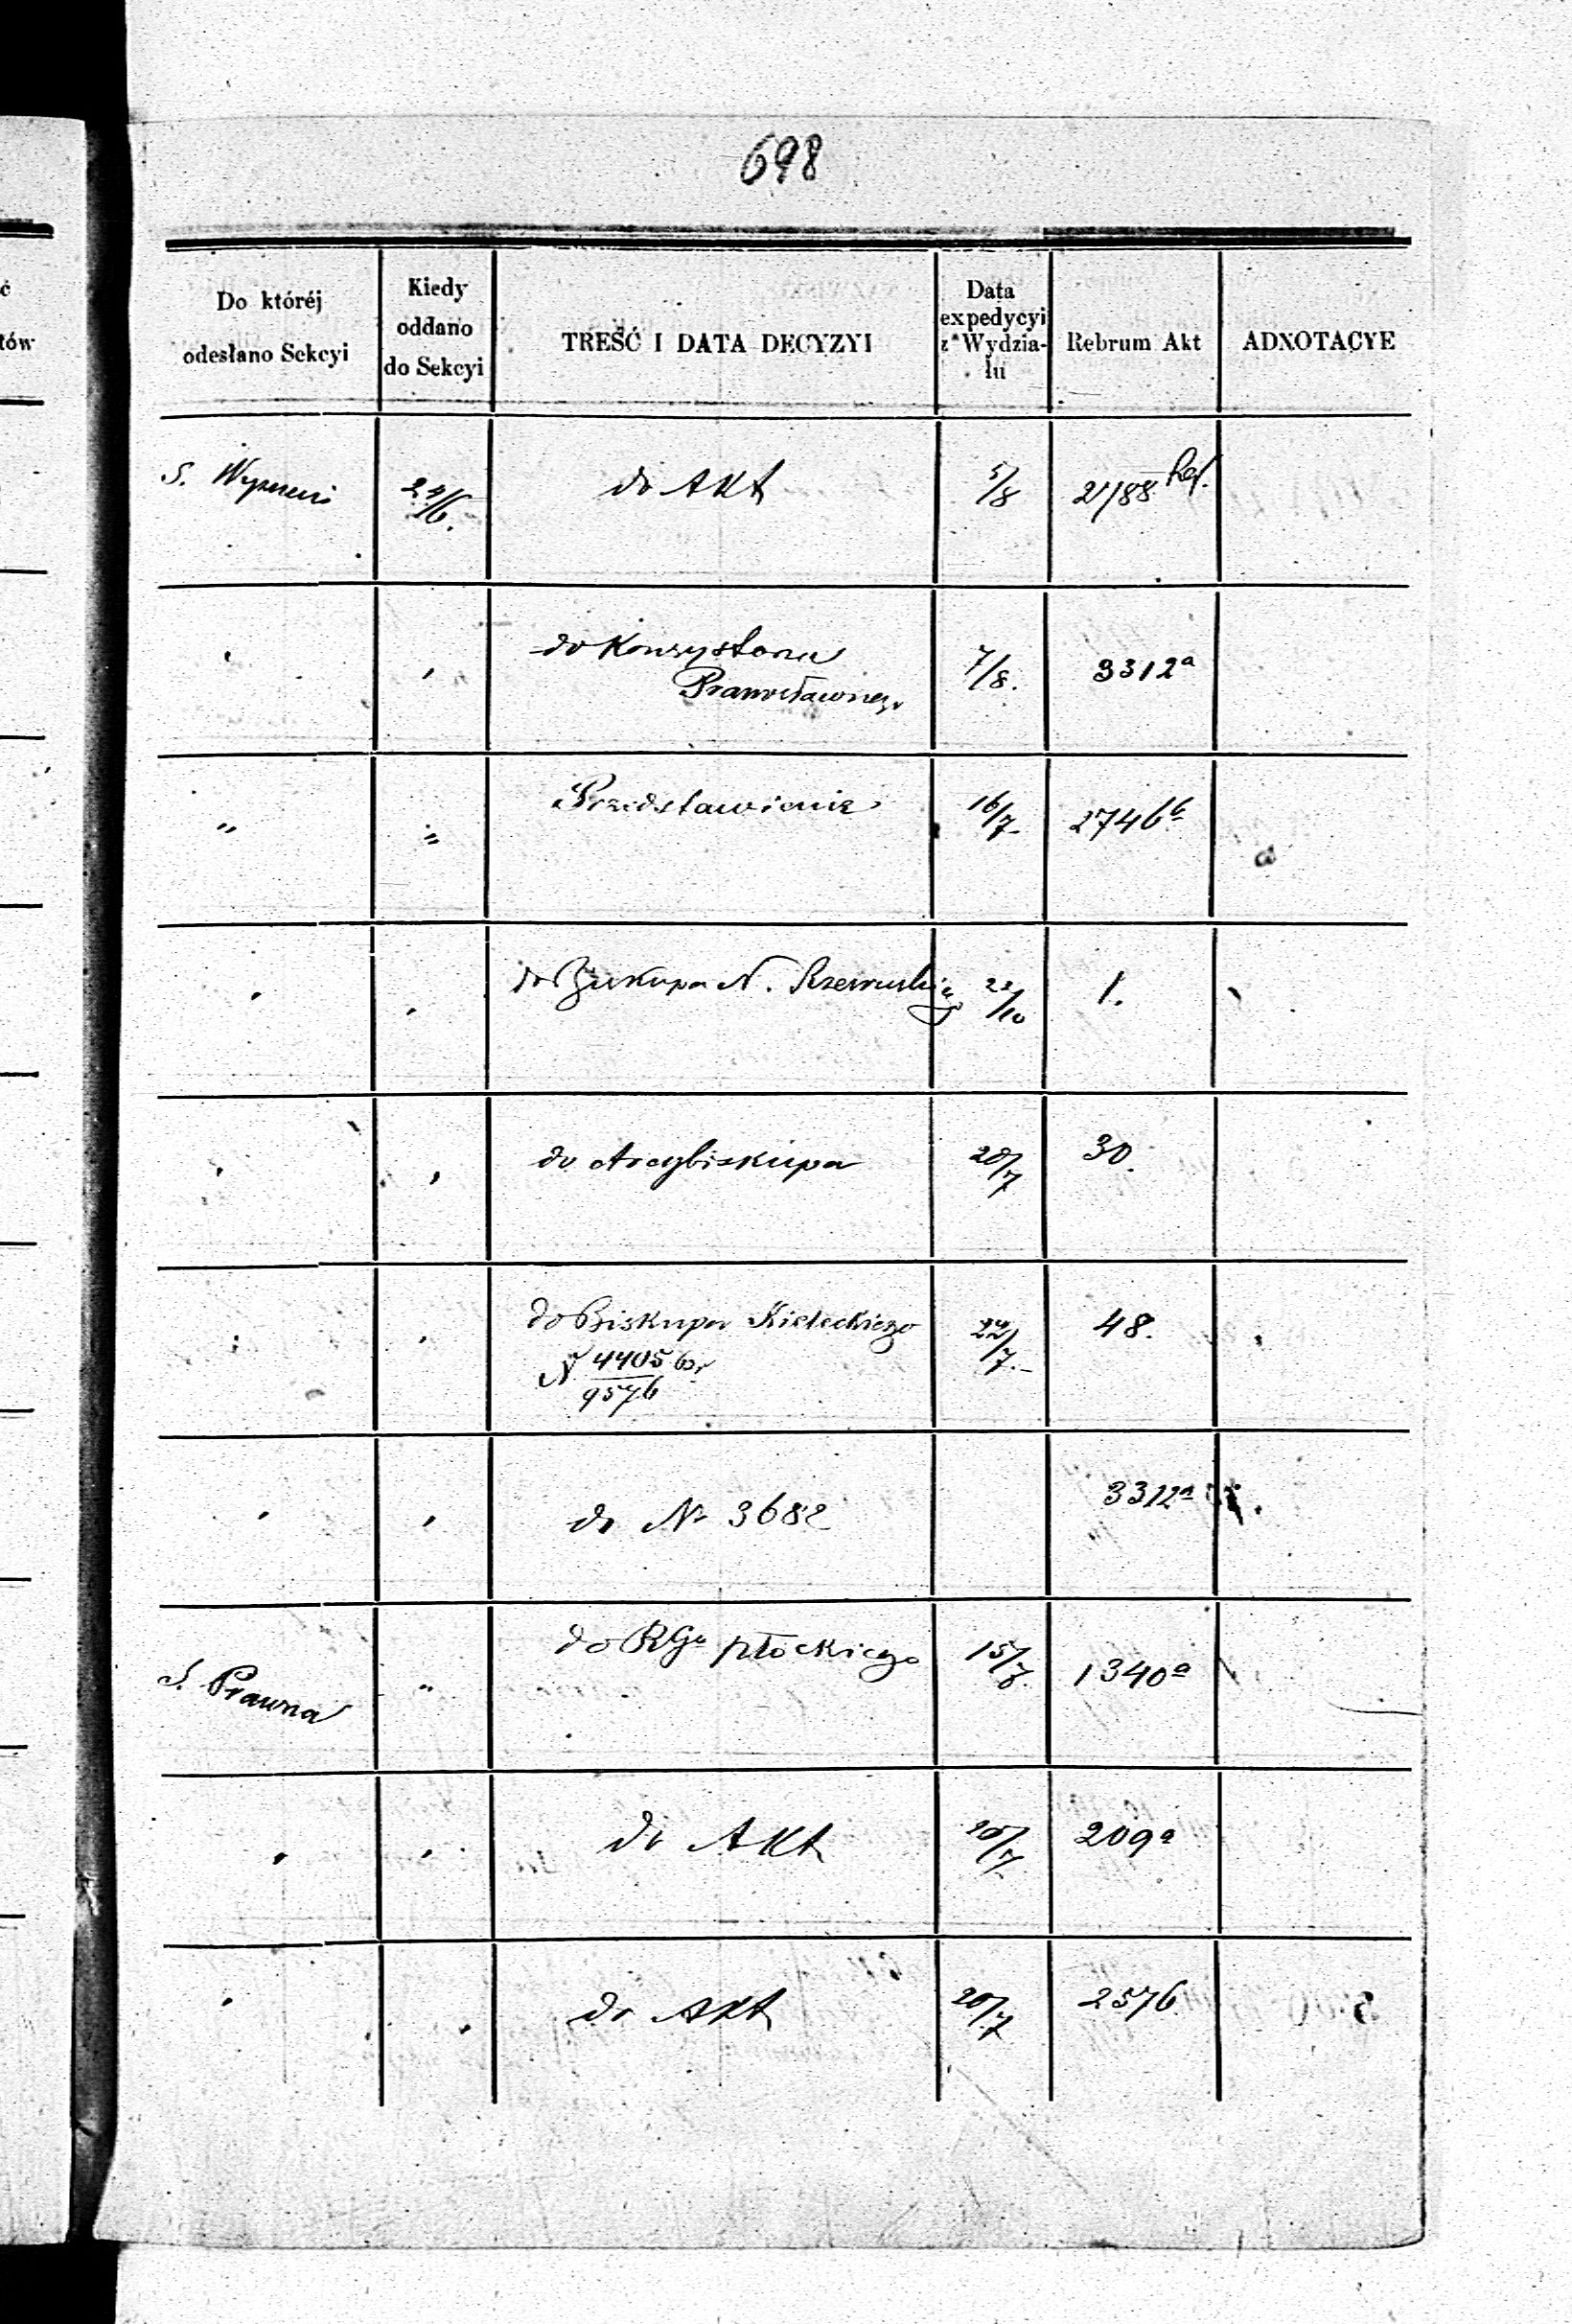 698
Do któréj
odesłano Sekcyi
Kiedy
oddano
do Sekcyi
TREŚĆ I DATA DECYZYI
Data
expedycyi
z Wydzia-
łu
Rebrum Akt
ADNOTACYE
S. 24/6. do Akt 5/8 2788 Ref.
do Konsystorza 7/8. 3312a
Prawosławnego
" " Przedstawienie 16/7 2746b
do Biskupa N. Rzewuskiego 22/10 1.
do Arcybiskupa 20/7 30.
do Biskupa Kieleckiego 24/7. 48.
N 4405
9576
do Nr 3682 3312a
S. Prawna " do RGu płockiego 15/7. 1340a
do Akt 20/7 209a
do Akt 20/7 2576